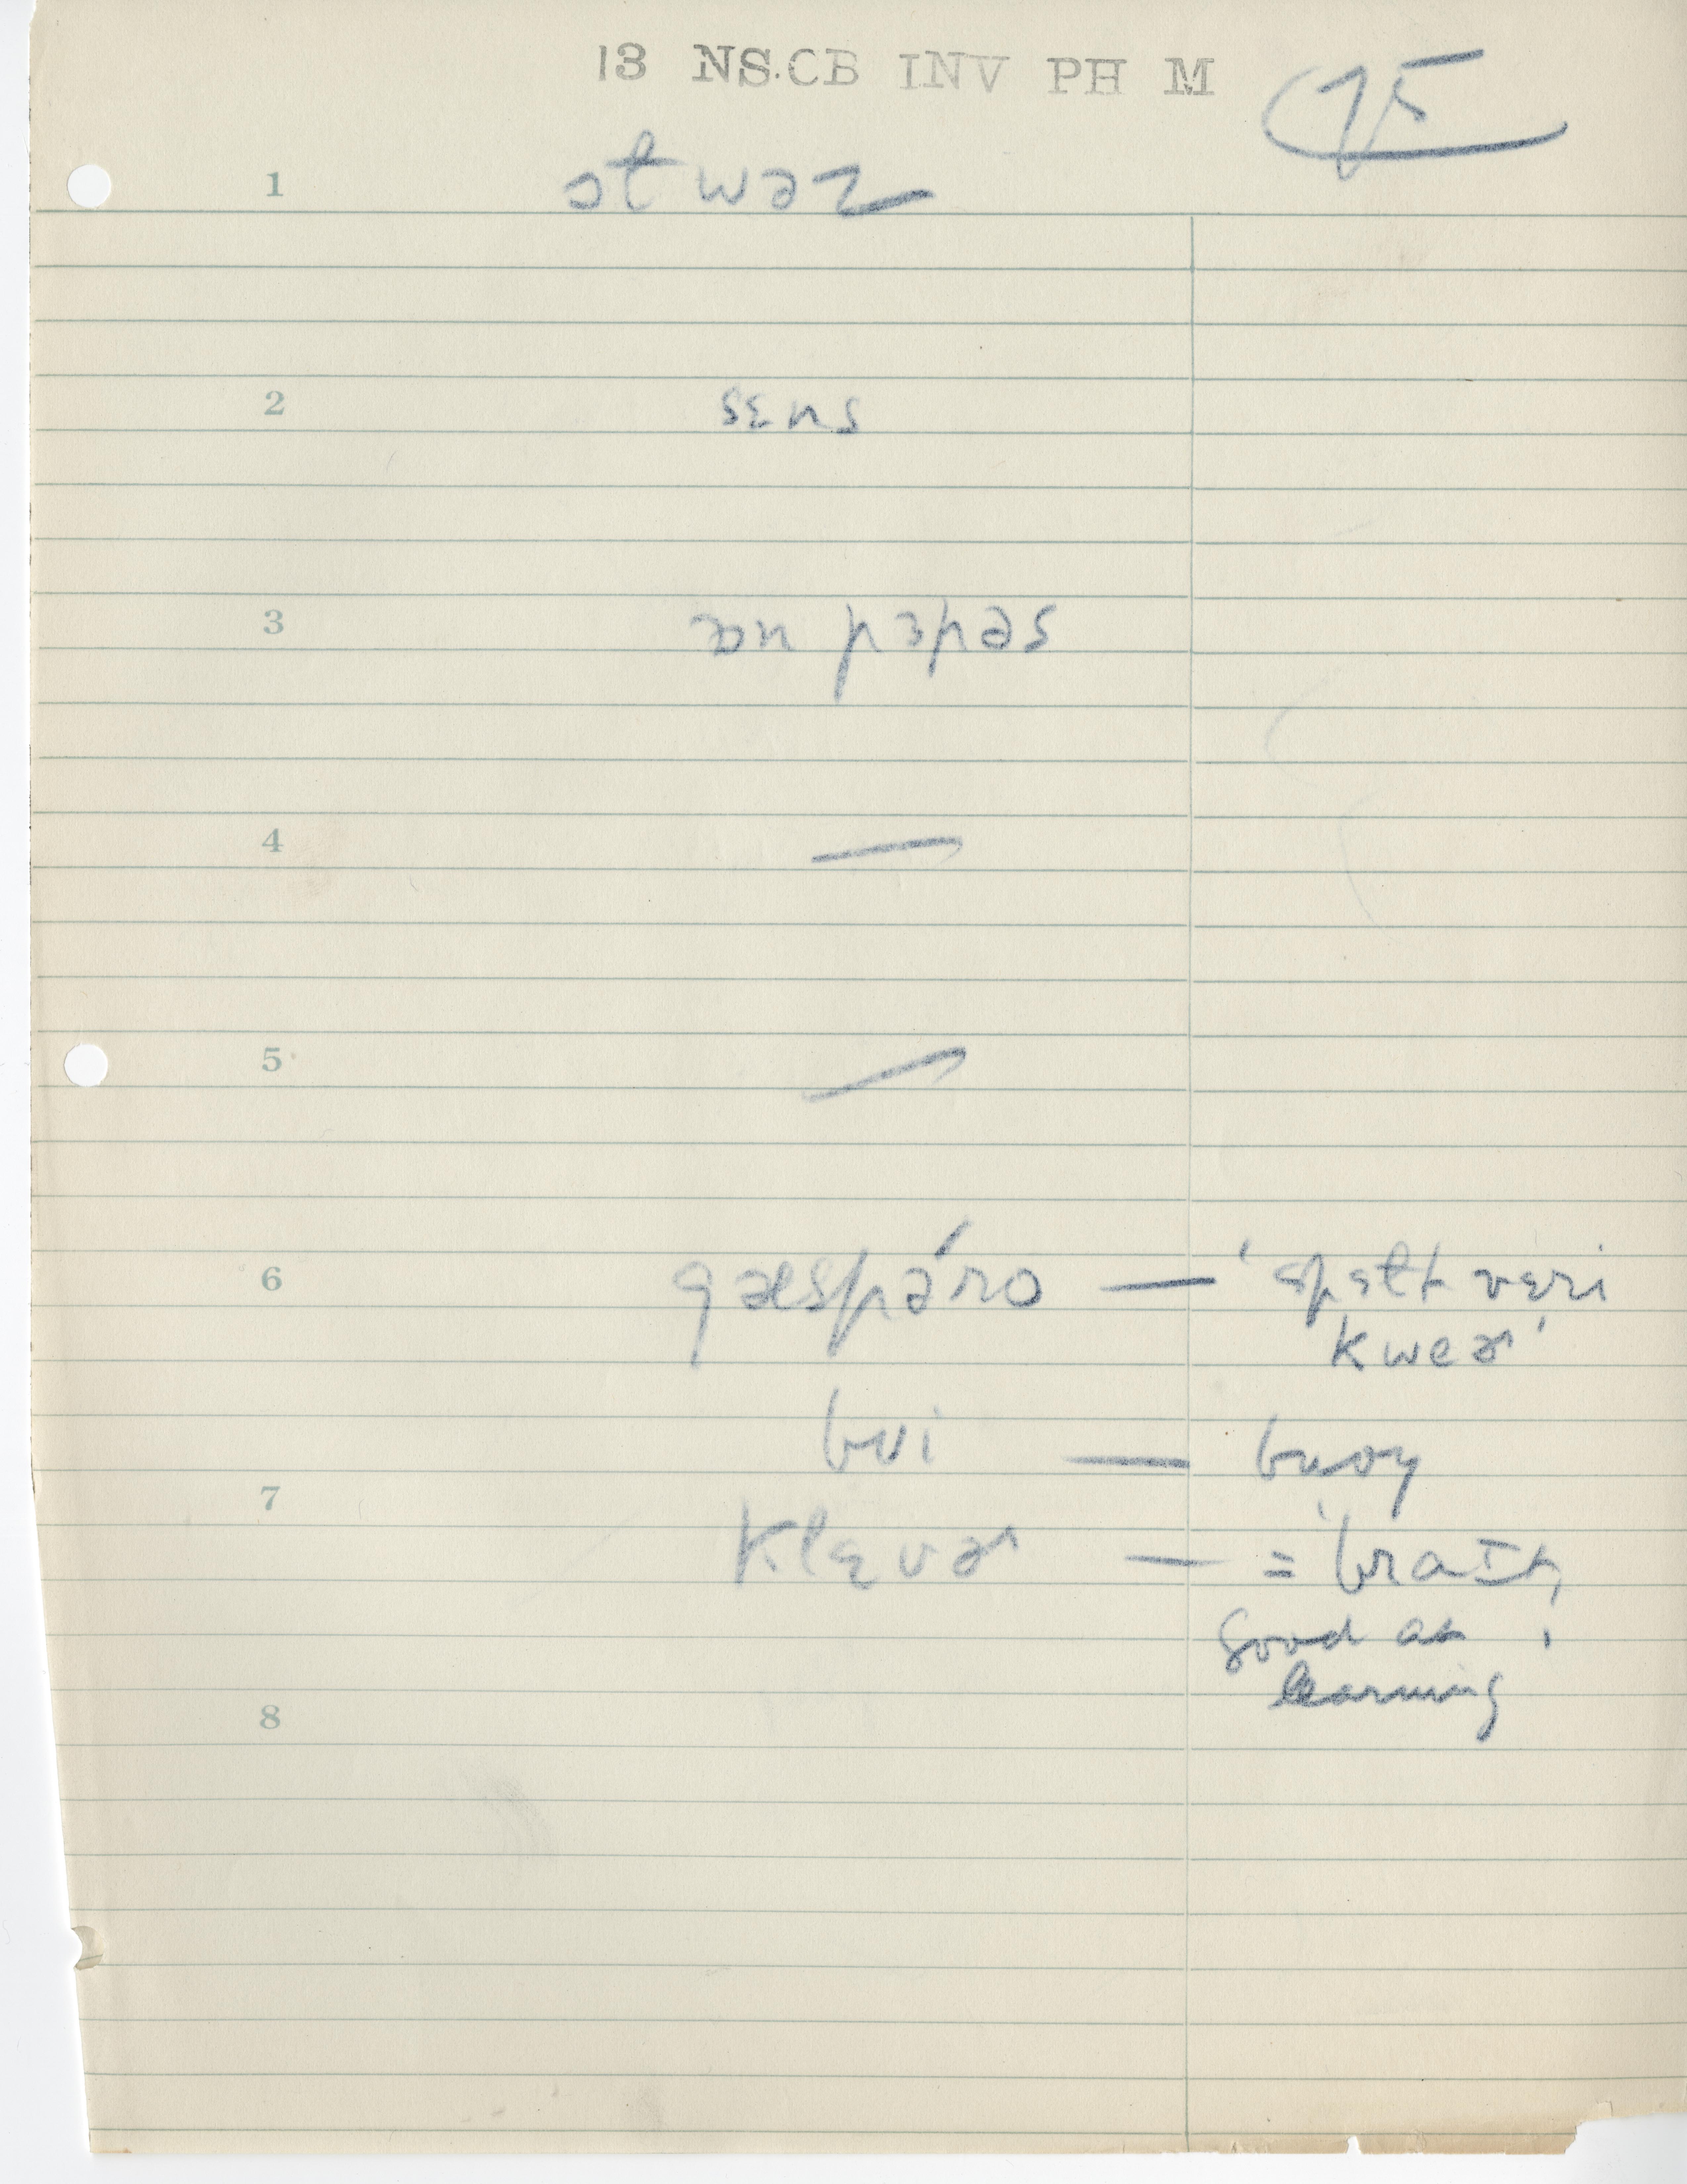 13 NS.CB INV PH M
75
1 ɔt wəz
2 sɛns
3 æn pɛpəs
4 —
5 —
6 gæspəro — 'spɛlt vɛri
kweɚ'
bui — buoy
7
klɛvɚ — = 'braɪt,
good at '
learning
8